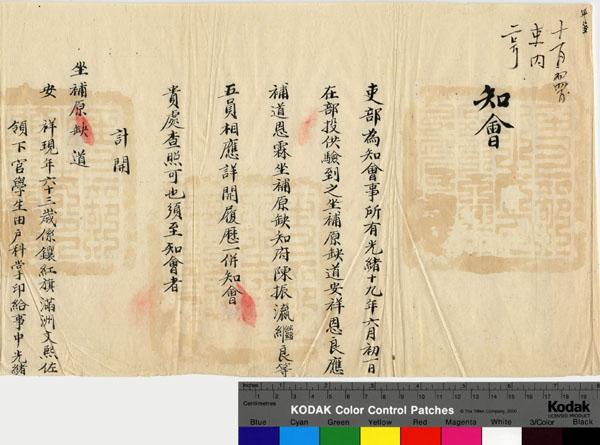 知會
吏部為知會事所有光緒十九年六月初一日
在部投供驗到之坐補原缺道安祥恩良應
補道恩霖坐補原缺知府陳振瀛繼良等
五員相應詳開履歷一併知會
貴處查照可也須至知會者
計開
坐補原缺道
安祥現年六十三歲係鑲紅旗滿洲文熙佐
領下官學生由戶科掌印給事中光緒
Inches
Centimetres
KODAK Color Control Patches
© The Tiffen Company, 2000
Kodak
LICENSED PRODUCT
Blue Cyan Green Yellow Red Magenta White 3/Color Black